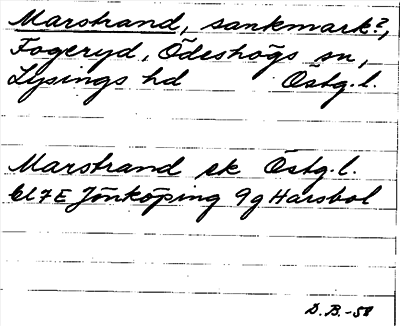 Marstrand, sankmark?,
Fogeryd, Ödeshögs sn,
Lysings hd Östg.l.
Marstrand ek Östg.l.
bl 7E Jönköping 9g Harsbol
D.B.-58